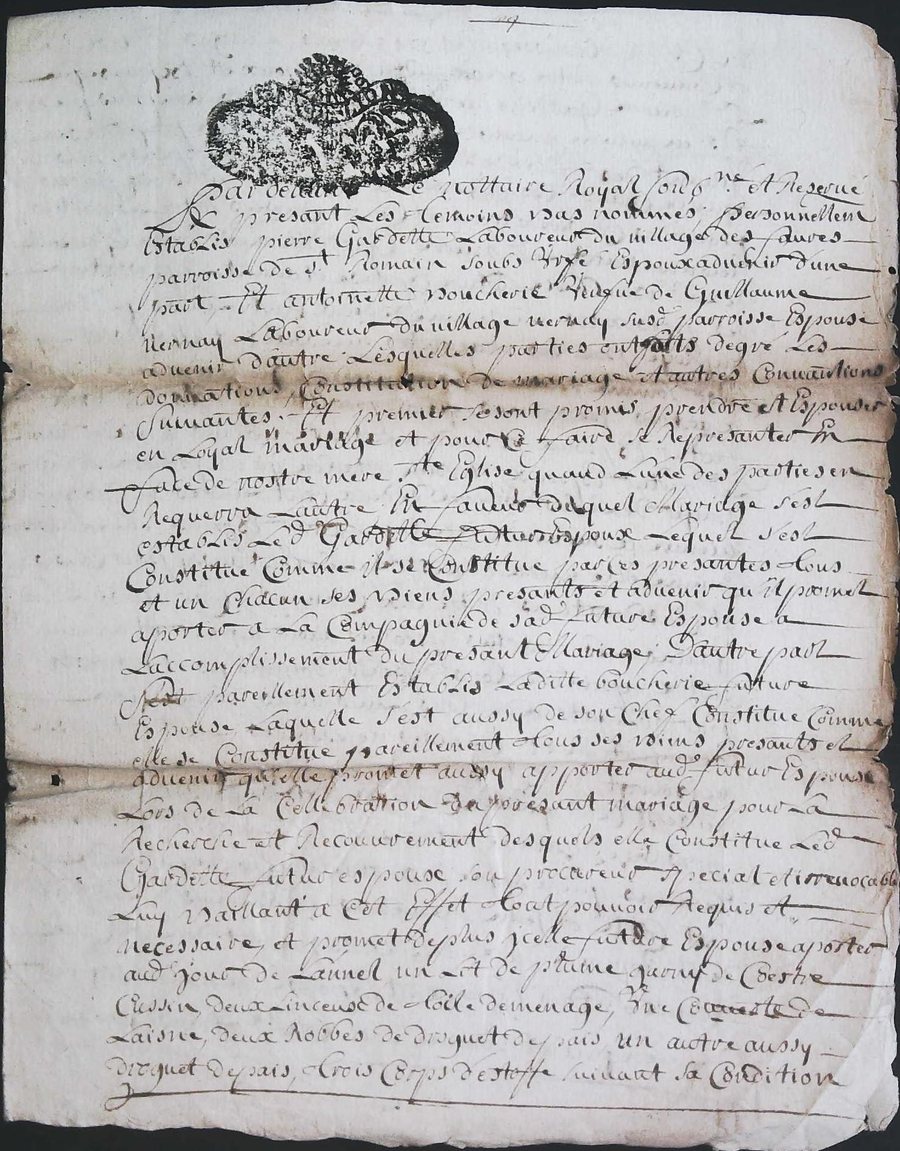 Par devant Le nottaire Royal sousne et Reservé
presant Les Temoins bas nommes, Personnellemt
Establis pierre Gardette Laboureur du village des faures
parroisse de st Romain soubs Urfe Espoux advenir d'une
part Et antoinette boucherie veufve de Guillaume
vernay Laboureur du village vernay susd parroisse Espouse
advenir d'autre Lesquelles parties ont faits degré Les
donnations Constitution de mariage et autres Convantions
suivantes. Et premier se sont promis prendre et Espouser
en Loyal mariage et pour Ce faire se Represanter En
face de nostre mere Ste Eglise quand Lune des parties en
Requerra Lautre En faveur duquel Mariage s'est
establis Led Gardette futur Espoux Lequel s'est
Constitue Comme il se Constitue par Ces presantes tous
et un Chacun ses biens presants et advenir qu'il promet
aporter a La Compagnie de sad future Espouse a
Laccomplissement du presant Mariage, D'autre part
s'est pareillement Establis Laditte boucherie future
Espouse Laquelle s'est aussy de son Chef Constitue Comme
elle se Constitue pareillement tous ses biens presants et
advenir qu'elle promet aussy apporter aud futur Espoux
Lors de La Cellebration du presant mariage pour La
Recherche et Recouvrement desquels elle Constitue Led
Gardette futur espoux son procureur special et irrevocable
Luy baillant a Cet Effet tout pouvoir Requis et
necessaire, et promet deplus icelle future Espouse aporter
aud jour de un Lit de plume garny de Coestre
Cussin, deux Linceux de toille de menage, Une Couverte de
Laisne, deux Robbes de droguet de pais, un autre aussy
droguet de pais, trois Corps d'estoffe suivant sa Condition